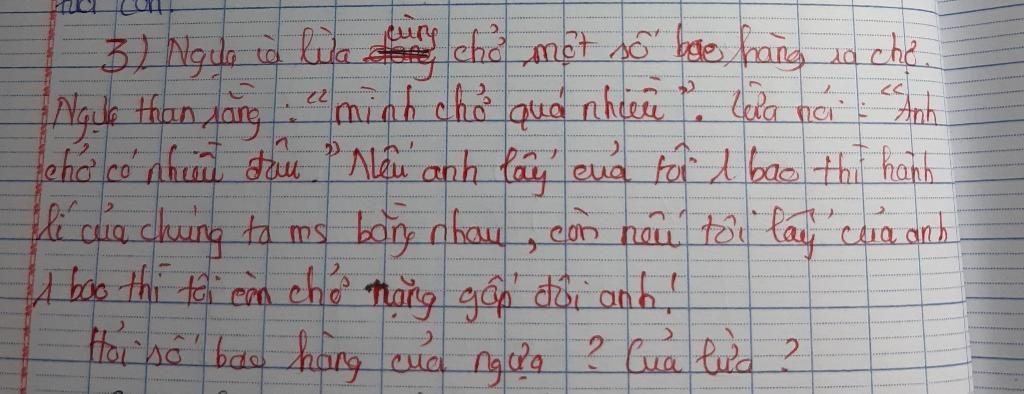 tuổi con.
3) Ngựa và lừa cùng chở một số bao hàng ra chợ.
Ngựa than rằng : "mình chở quá nhiều". Lừa nói : "Anh
chở có nhiều đâu." Nếu anh lấy của tôi 1 bao thì hành
lí của chúng ta ms bằng nhau, còn nếu tôi lấy của anh
1 bao thì tôi còn chở nặng gấp đôi anh!
Hỏi số bao hàng của ngựa ? Của lừa ?